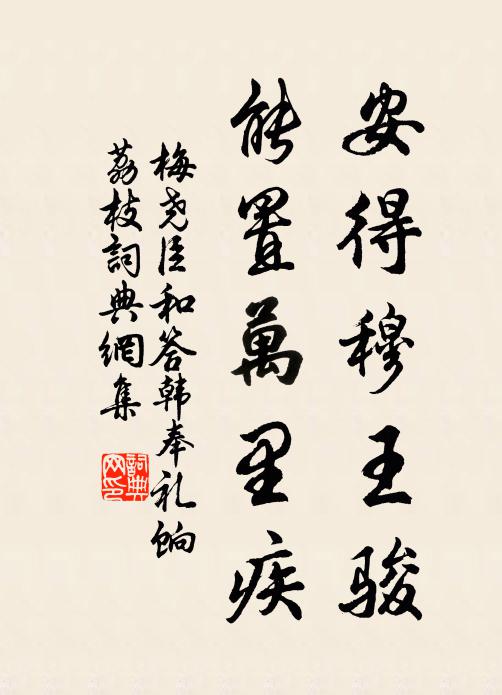 安得穆王骏
能置萬里疾
梅尧臣和答韩奉礼饷
荔枝詞典網集
詞典网印